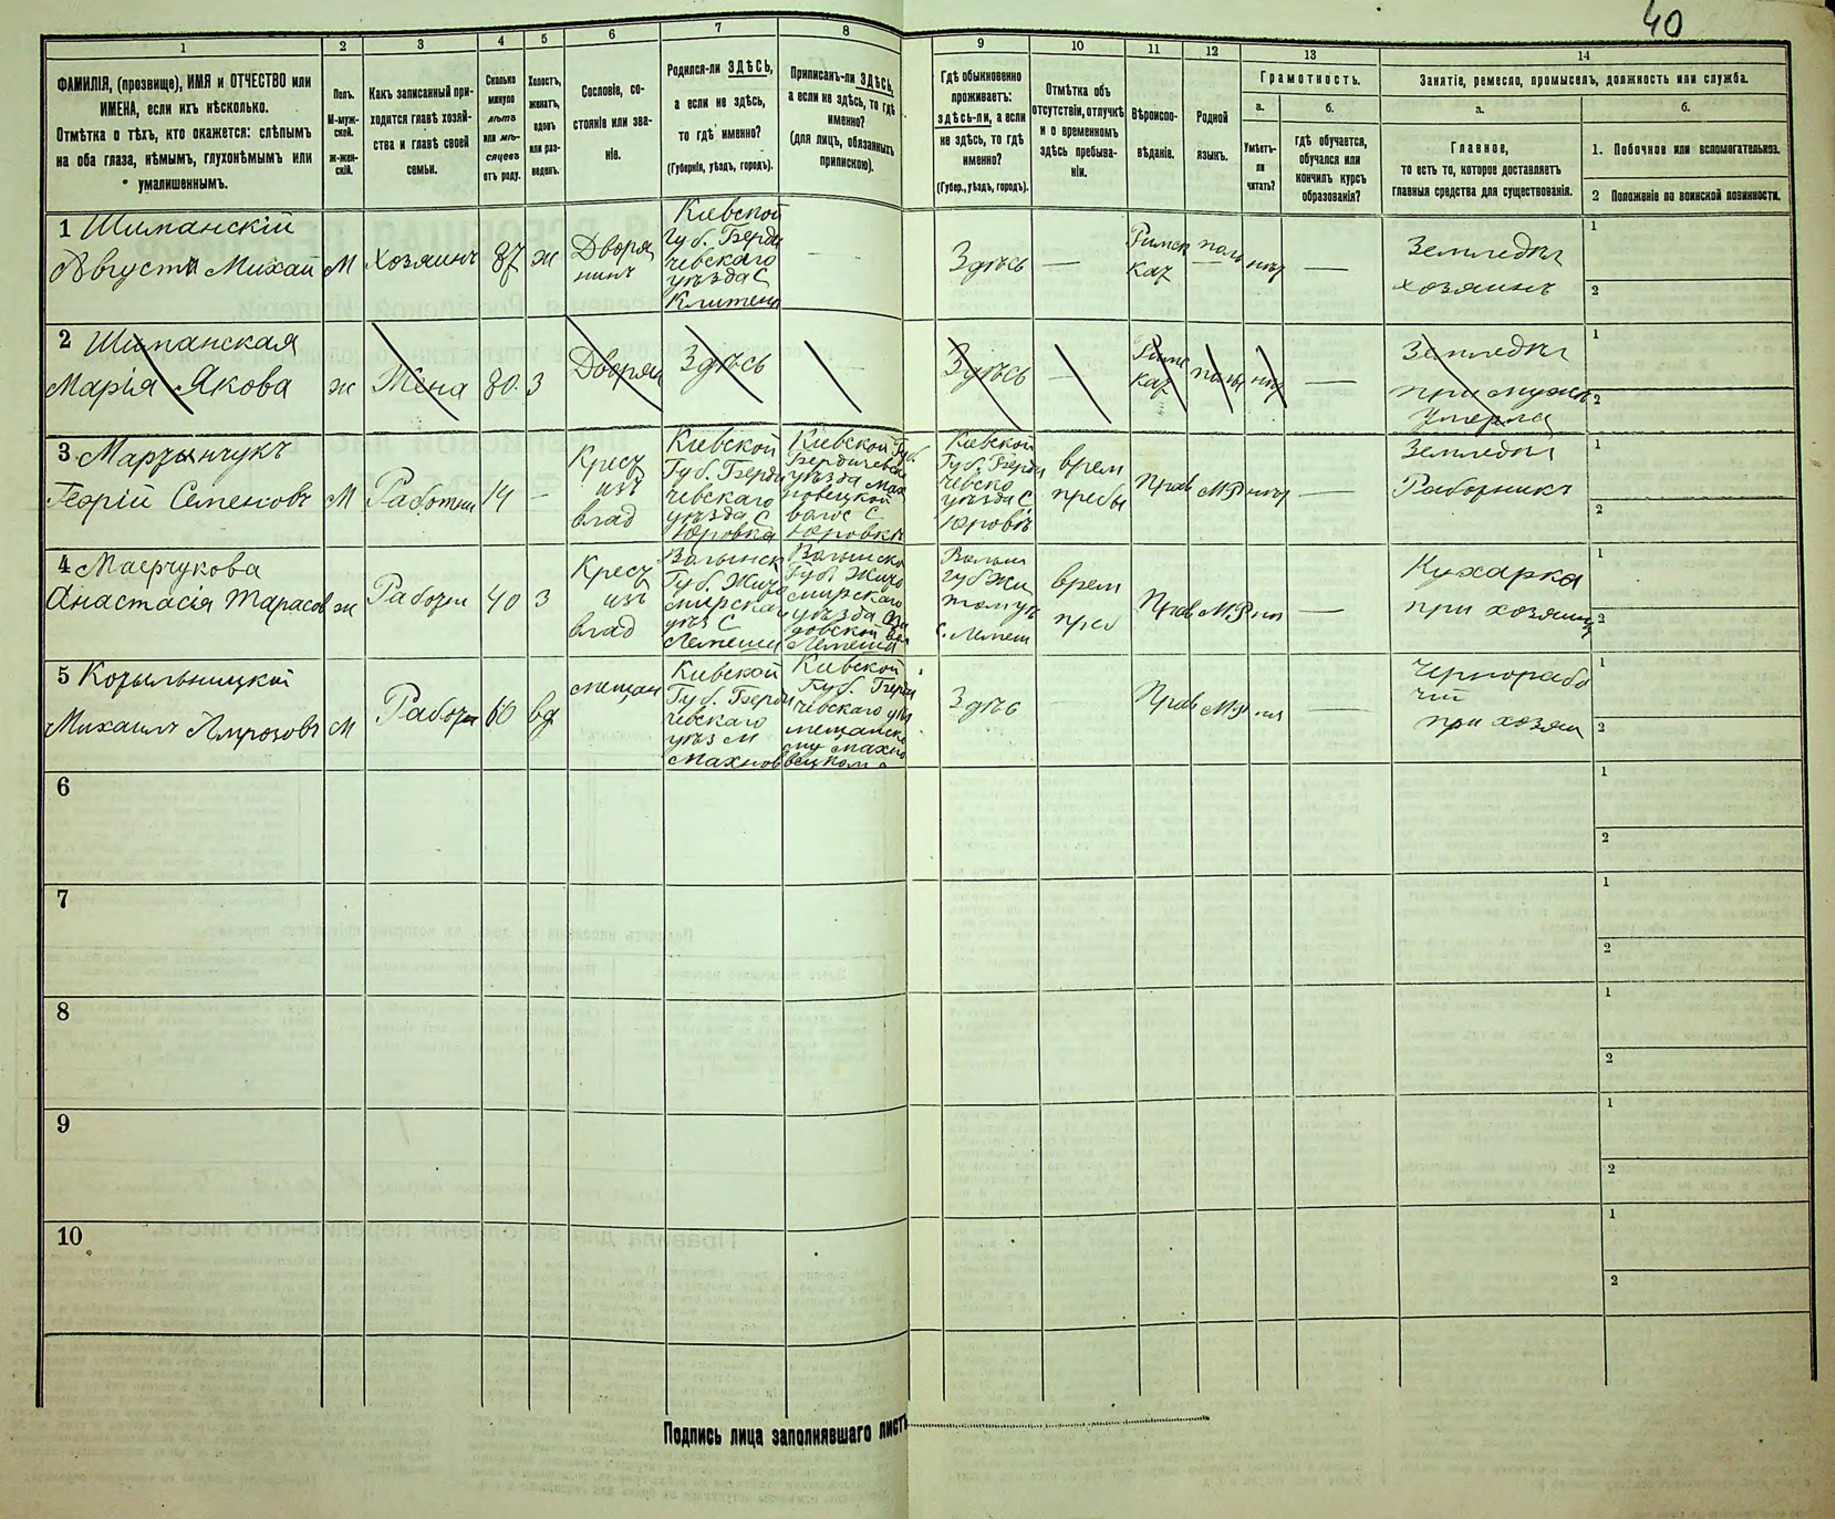 40
1
2
3
4
5
6
7
8
9
10
11
12
13
14
ФАМИЛІЯ, (прозвище), ИМЯ и ОТЧЕСТВО или
ИМЕНА, если ихъ нѣсколько.
Отмѣтка о тѣхъ, кто окажется: слѣпымъ
на оба глаза, нѣмымъ, глухонѣмымъ или
умалишеннымъ.
Полъ.
М-муж-
ской.
ж-жен-
скій.
Какъ записанный при-
ходится главѣ хозяй-
ства и главѣ своей
семьи.
Сколько
минуло
лѣтъ
или мѣ-
сяцевъ
отъ роду.
Холостъ,
женатъ,
вдовъ
или раз-
веденъ.
Сословіе, со-
стояніе или зва-
ніе.
Родился-ли ЗДѢСЬ,
а если не здѣсь,
то гдѣ именно?
(Губернія, уѣздъ, городъ).
Приписанъ-ли ЗДѢСЬ,
а если не здѣсь, то гдѣ
именно?
(для лицъ, обязанныхъ
припискою).
Гдѣ обыкновенно
проживаетъ:
здѣсь-ли, а если
не здѣсь, то гдѣ
именно?
(Губер., уѣздъ, городъ).
Отмѣтка объ
отсутствіи, отлучкѣ
и о временномъ
здѣсь пребыва-
ніи.
Вѣроиспо-
вѣданіе.
Родной
языкъ.
Грамотность.
а.
б.
Умѣетъ-
ли
читать?
гдѣ обучается,
обучался или
кончилъ курсъ
образованія?
Занятіе, ремесло, промыселъ, должность или служба.
а.
б.
Главное,
то есть то, которое доставляетъ
главныя средства для существованія.
1. Побочное или вспомогательное.
2 Положеніе по воинской повинности.
1 Шиманскій
Августъ Михай
М
Хозяинъ
87
ж
Дворя
нинъ
Кіевской
Губ. Берди
чевскаго
уѣзда С
Здѣсь
—
Римск
каѳ
поль
—
Земледѣл
хозяинъ
1
2
2 Шиманская
Марія Якова
ж
Жена
80
З
Дворян
Здѣсь
Здѣсь
—
Римс
каѳ
поль
—
Земледѣл
при мужѣ
Умерла
1
2
3
Георій Семеновъ
М
Работни
14
–
Крест
изъ
влад
Кіевской
Губ. Берди
чевскаго
уѣзда С
Юровка
Кіевской Губ.
Бердичевск
уѣзда Мах
новецкой
волос С
Юровки
Кіевской
Губ. Берди
чевско
уѣзда С
врем
пребы
Прав
МР
—
Земледѣл
Работникъ
1
2
4
Анастасія Тарасов
ж
Работн
40
З
Крест
изъ
влад
Волынск
Губ. Жито
мирскаго
уѣз С
Лемеши
Волынско
Губ. Жито
мирскаго
уѣзда
Лемеши
Волын
губ Жи
томур
С. Лемеш
врем
преб
Прав
МР
—
Кухарка
при хозяину
1
2
5
Михаилъ
М
Работн
60
вд
мещан
Кіевской
Губ. Берди
чевскаго
уѣз М
Махнов
Кіевской
Губ. Берди
чевскаго уѣз
мещанско
му Махно
вецком
Здѣс
Прав
МР
—
Чернорабо
чій
при хозяи
1
2
6
1
2
7
1
2
8
1
2
9
1
2
10
1
2
Подпись лица заполнявшаго листъ